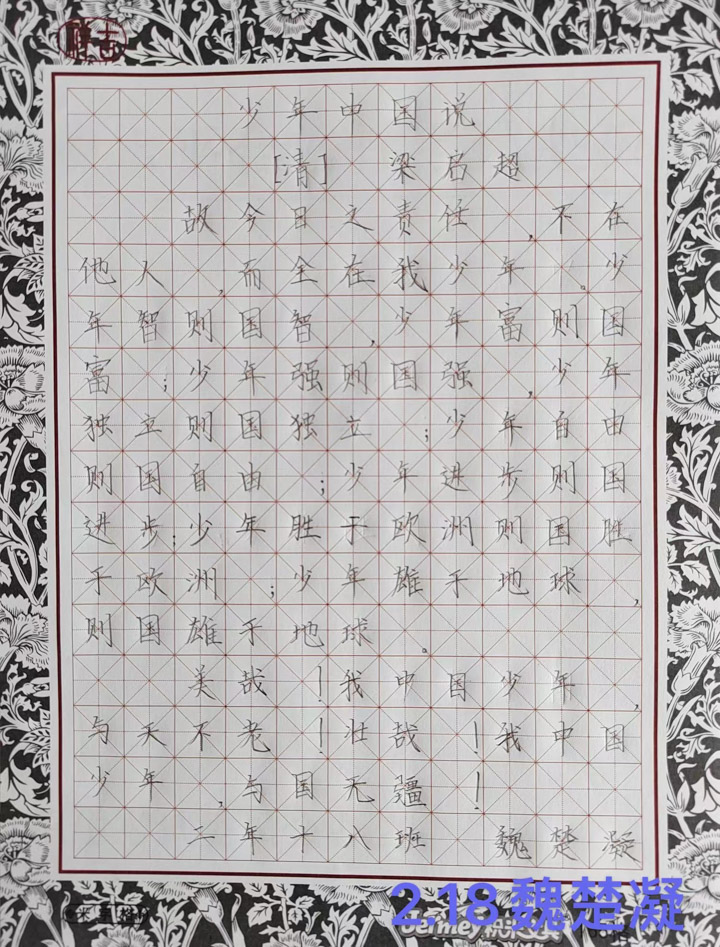 少年中国说
[清] 梁启超
故今日之责任,不在
他人,而全在我少年。少
年智则国智,少年富则国
富;少年强则国强,少年
独立则国独立;少年自由
则国自由;少年进步则国
进步;少年胜于欧洲则国胜
于欧洲;少年雄于地球,
则国雄于地球。
美哉!我中国少年,
与天不老!壮哉!我中国
少年,与国无疆!
二年十八班 魏楚凝
2.18魏楚凝